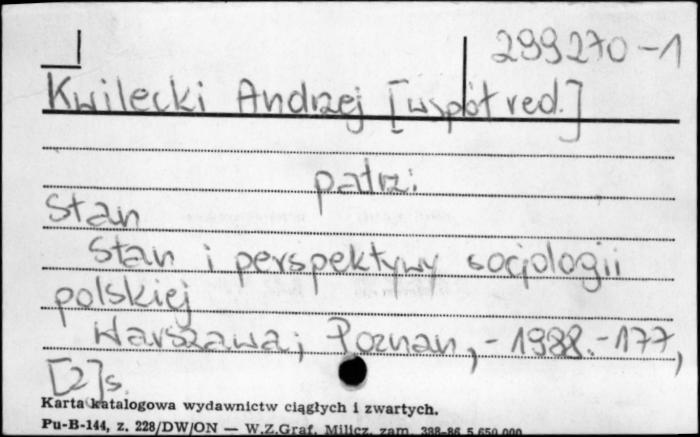 299270-1
Kwilecki Andrzej [współred.]
patrz:
Stan
Stan i perspektywy socjologii
polskiej
Warszawa; Poznan, - 1988. - 177,
[2]s.
Karta katalogowa wydawnictw ciągłych i zwartych.
Pu-B-144, z. 228/DW/ON — W.Z.Graf. Milicz, zam. 388-86 5.650.000